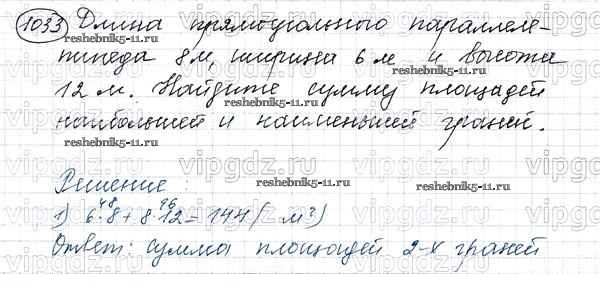 1033 Длина прямоугольного параллеле-
пипеда 8 м, ширина 6 м и высота
12 м. Найдите сумму площадей
наибольшей и наименьшей граней.
Решение:
48 96
1) 6·8+8·12=144( м²)
Ответ: сумма площадей 2-х граней
reshebnik5-11.ru
reshebnik5-11.ru
reshebnik5-11.ru
reshebnik5-11.ru
reshebnik5-11.ru
reshebnik5-11.ru
vipgdz.ru
vipgdz.ru
vipgdz.ru
vipgdz.ru